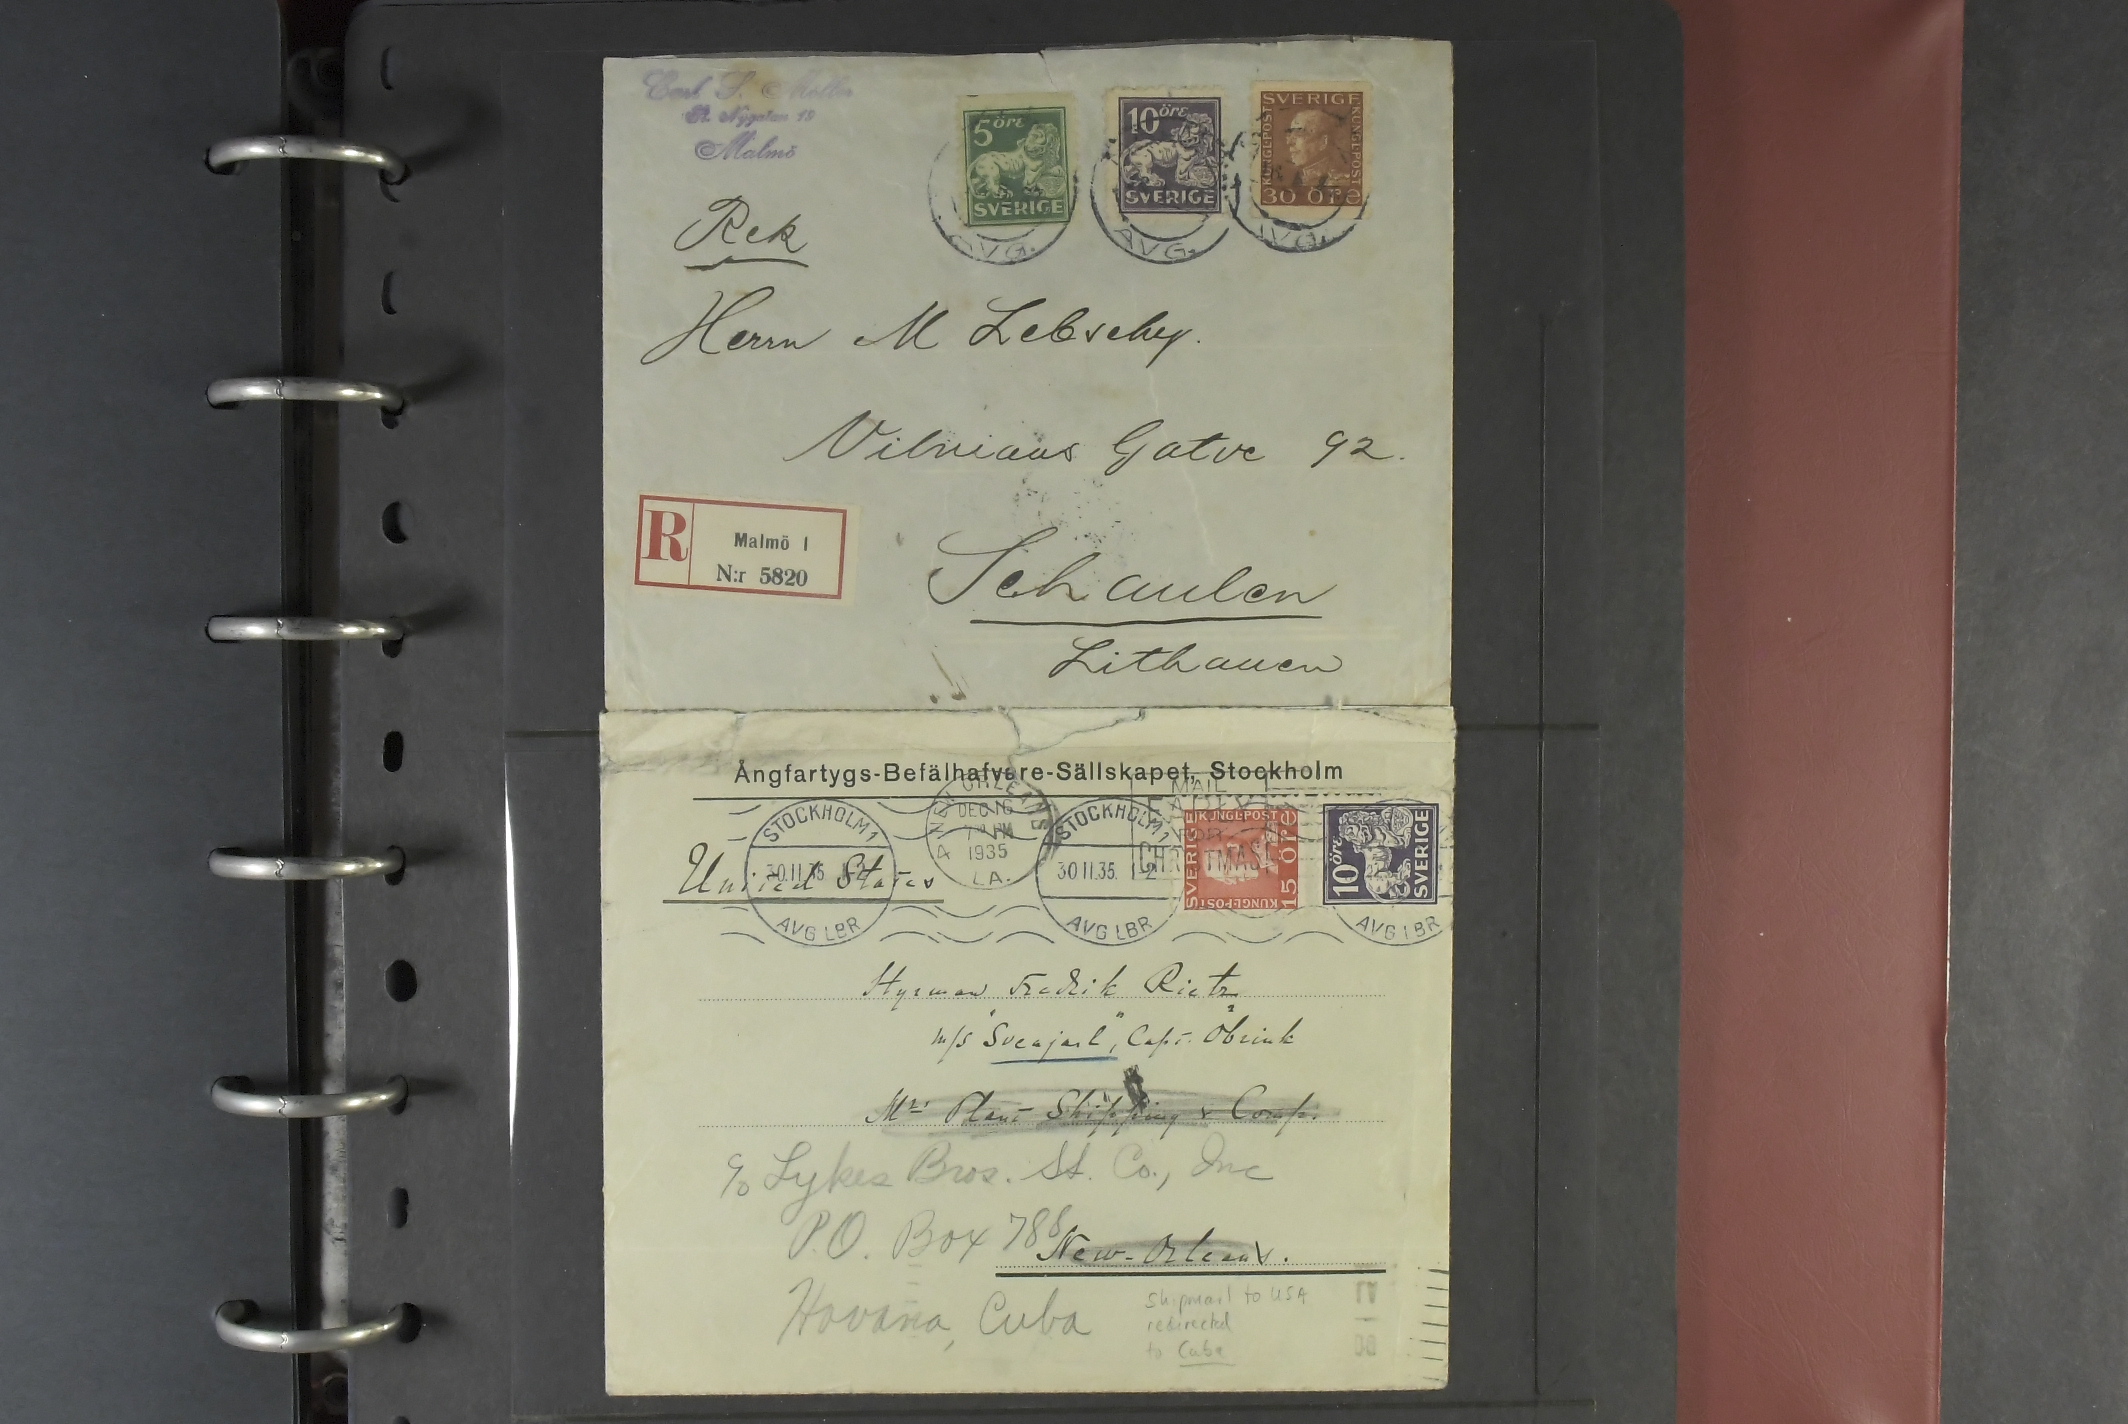 Carl S. Möller
St. Nygatan 19
Malmö
5 öre
SVERIGE
10 öre
SVERIGE
SVERIGE
KUNGL·POST
KUNGL·POST
30 öre
AVG.
AVG.
AVG.
Rek
Herrn M Lebschy.
Vilniaus Gatve 92.
R
Malmö 1
N:r 5820
Schaulen
Lithauen
Ångfartygs-Befälhafvare-Sällskapet, Stockholm
STOCKHOLM 1
30.11.35
AVG LBR
NEW ORLEANS
DEC 16
PM
1935
LA.
STOCKHOLM 1
30.11.35
AVG LBR
MAIL
EARLY
FOR
CHRISTMAS
SVERIGE
KUNGL·POST
KUNGL·POST
15 öre
10 öre
SVERIGE
AVG LBR
United States
Hyrman Fredrik Rietz
m/s "Sveajarl", Capt. Öbrink
Mrs. Plant Shipping & Comp.
c/o Lykes Bros. St. Co., Inc
P.O. Box 788
New-Orleans.
Havana, Cuba
shipmail to USA
redirected
to Cuba